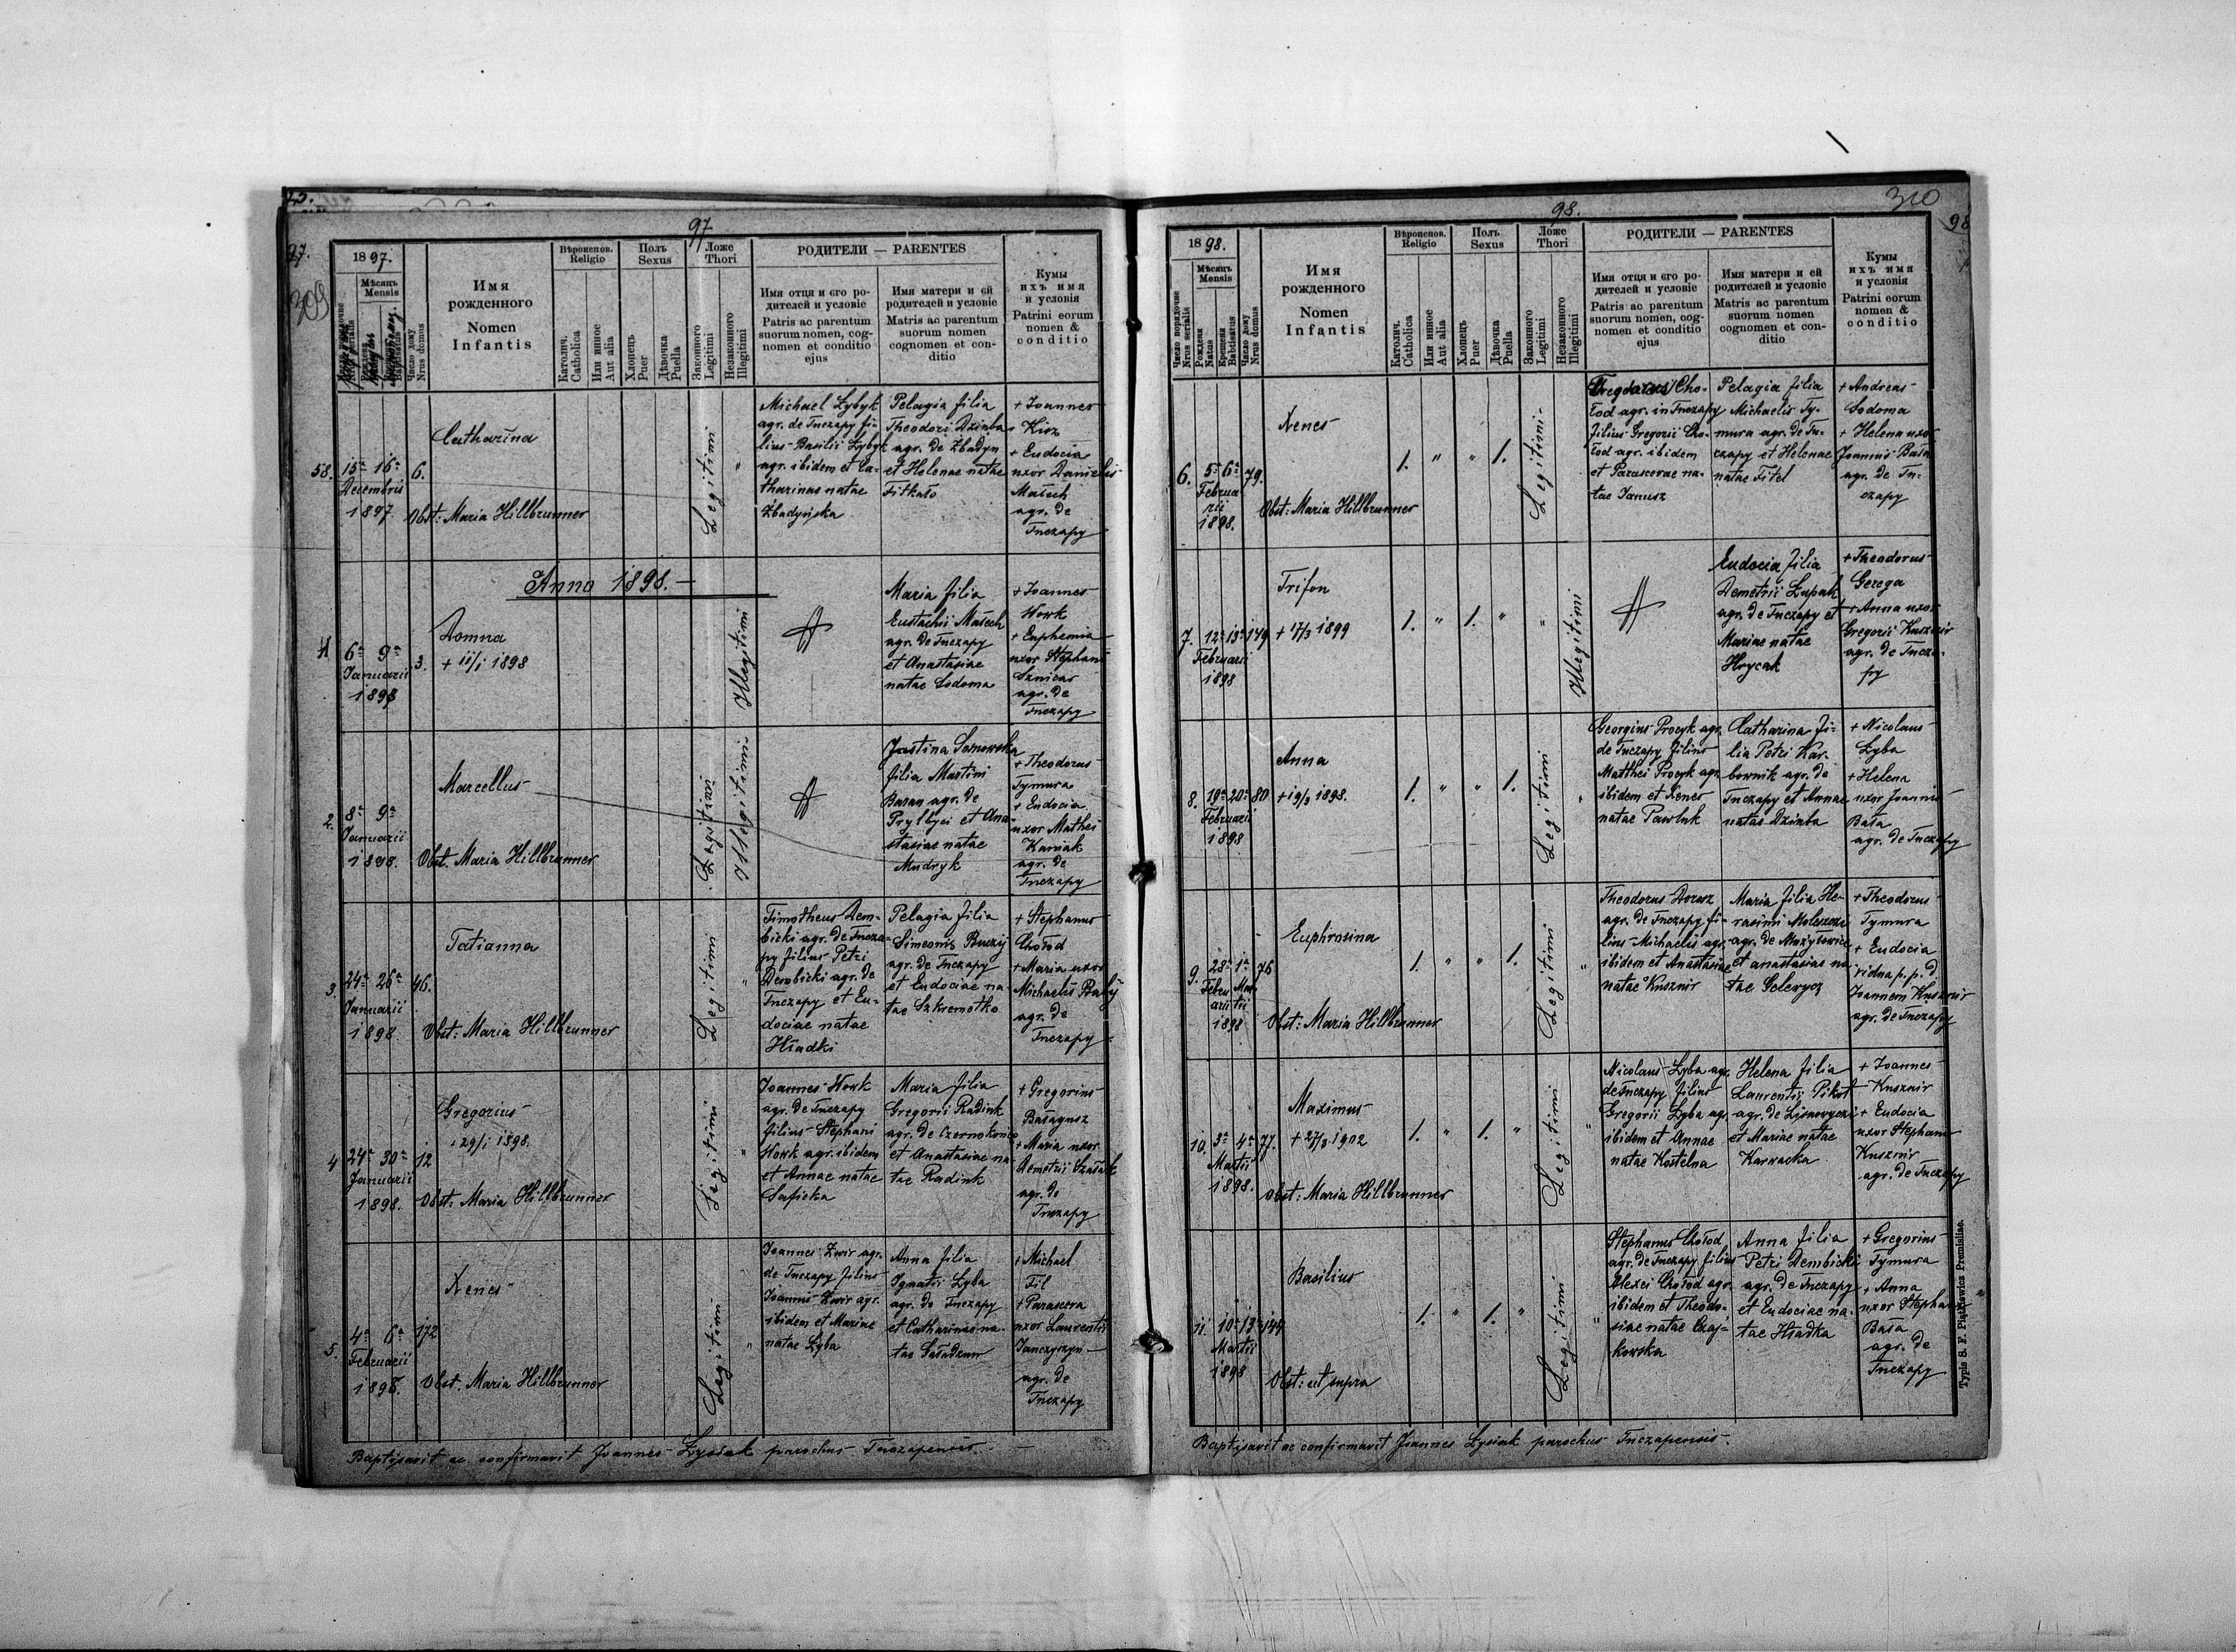 97
97.
309
1897.
Мѣсяцъ
Mensis
Число дому
Nrus domus
Имя
рожденного
Nomen
Infantis
Вѣроиспов.
Religio
Католич.
Catholica
Или инное
Aut alia
Полъ
Sexus
Хлопець
Puer
Дѣвочка
Puella
Ложе
Thori
Законного
Legitimi
Незаконного
Illegitimi
РОДИТЕЛИ — PARENTES
Имя отця и єго ро-
дителей и условіє
Patris ac parentum
suorum nomen, cog-
nomen et conditio
ejus
Имя матери и єй
родителей и условіє
Matris ac parentum
suorum nomen
cognomen et con-
ditio
Кумы
ихъ имя
и условія
Patrini eorum
nomen &
conditio
58.
15a 16a
Decembris
1897.
6.
Catharina
Obst: Maria Hillbrunner
Legitimi
Michael Łybyk
agr. de Tuczapy fi-
lius Basilii Łybyk
agr. ibidem et Ca-
tharinae natae
Zbadyńska
Pelagia filia
Theodori Dziuba
agr. de Zbadyn
et Helenae natae
Fitkało
+ Joannes
Kisz
+ Eudocia
uxor Danielis
Małech
agr. de
Tuczapy
Anno 1898.—
1
6a 9a
Januarii
1898
3.
Domna
+ 11/1 1898
Illegitimi
Maria filia
Eustachii Małech
agr. de Tuczapy
et Anastasiae
natae Sodoma
+ Joannes
Wowk
+ Euphemia
uxor Stephani
Sznicar
agr. de
Tuczapy
2.
8a 9a
Januarii
1898.
Marcellus
Obst. Maria Hillbrunner
Legitimi
Illegitimi
Justina Sosnowska
filia Martini
Baran agr. de
Pryłbyci et Ana-
stasiae natae
Mudryk
+ Theodorus
Tymura
+ Eudocia
uxor Mathei
Kaniak
agr. de
Tuczapy
3.
24a 26a
Januarii
1898.
46.
Tatianna
Obst: Maria Hillbrunner
Legitimi
Timotheus Dem-
bicki agr. de Tucza-
py filius Petri
Dembicki agr. de
Tuczapy et Eu-
dociae natae
Hładki
Pelagia filia
Simeonis Buczij
agr. de Tuczapy
et Eudociae na-
tae Szkremotko
+ Stephanus
Chołod
+ Maria uxor
Michaelis Babij
agr. de
Tuczapy
4
24a 30a
Januarii
1898.
12
Gregorius
+ 29/1 1898.
Obst: Maria Hillbrunner
Legitimi
Joannes Wowk
agr. de Tuczapy
filius Stephani
Wowk agr. ibidem
et Annae natae
Saficka
Maria filia
Gregorii Radiuk
agr. de Czernokonce
et Anastasiae na-
tae Radiuk
+ Gregorius
Bałagusz
+ Maria uxor
Demetrii Szałak
agr. de
Tuczapy
5.
4a 6a
Februarii
1898.
172
Xenes
Obst. Maria Hillbrunner
Legitimi
Joannes Zwir agr.
de Tuczapy filius
Joannis Zwir agr.
ibidem et Mariae
natae Łyba
Anna filia
Ignatii Łyba
agr. de Tuczapy
et Catharinae na-
tae Saładzun
+ Michael
Fil
+ Parascera
uxor Laurentii
Janczyszyn
agr. de
Tuczapy
Baptisavit ac confirmavit Joannes Łysiak parochus Tuczapensis.
98.
310
98
1898.
Число порядочне
Nrus serialis
Мѣсяцъ
Mensis
Рожденя
Natus
Крещеня
Babtisatus
Число дому
Nrus domus
Имя
рожденного
Nomen
Infantis
Вѣроиспов.
Religio
Католич.
Catholica
Или инное
Aut alia
Полъ
Sexus
Хлопець
Puer
Дѣвочка
Puella
Ложе
Thori
Законного
Legitimi
Незаконного
Illegitimi
РОДИТЕЛИ — PARENTES
Имя отця и єго ро-
дителей и условіє
Patris ac parentum
suorum nomen, cog-
nomen et conditio
ejus
Имя матери и єй
родителей и условіє
Matris ac parentum
suorum nomen
cognomen et con-
ditio
Кумы
ихъ имя
и условія
Patrini eorum
nomen &
conditio
6.
5a 6a
Februa-
rii
1898.
79.
Xenes
Obst: Maria Hillbrunner
1. " " 1.
Legitimi
Cho-
łod agr. in Tuczapy
filius Gregorii Cho-
łod agr. ibidem
et Parascevae na-
tae Janusz
Pelagia filia
Michaelis Ty-
mura agr. de Tu-
czapy et Helenae
natae Fitel
+ Andreas
Sodoma
+ Helena uxor
Joannis Bała
agr. de Tu-
czapy
7.
12a 13a
Februarii
1898
149
Trifon
+ 17/3 1899
1. " 1. " "
Illegitimi
Eudocia filia
Demetrii Łupak
agr. de Tuczapy et
Mariae natae
Hrycak
+ Theodorus
Gerega
+ Anna uxor
Gregorii Kusznir
agr. de Tucza-
py
8.
19a 20a
Februarii
1898
80
Anna
+ 19/3 1898.
1. " " 1.
Legitimi
Georgius Procyk agr.
de Tuczapy filius
Matthei Procyk agr.
ibidem et Xenes
natae Pawluk
Catharina fi-
lia Petri Kar-
bownik agr. de
Tuczapy et Annae
natae Dziuba
+ Nicolaus
Łyba
+ Helena
uxor Joannis
Bała
agr. de Tuczapy
9.
28a 1a
Febru Mar-
arii tii
1898
76
Euphrosina
Obst: Maria Hillbrunner
1. " " 1.
Legitimi
Theodorus Dorosz
agr. de Tuczapy fi-
lius Michaelis agr.
ibidem et Anastasiae
natae Kusznir
Maria filia He-
rasimi Meleszczi
agr. de Mużyłowice
et anastasiae na-
tae Selerycz
+ Theodorus
Tymura
+ Eudocia
vidua p. p. d.
Joannem Kusznir
agr. de Tuczapy
10.
3a 4a
Martii
1898.
77.
Maximus
+ 27/8 1902
Obst: Maria Hillbrunner
1. " 1. "
Legitimi
Nicolaus Łyba agr.
de Tuczapy filius
Gregorii Łyba agr.
ibidem et Annae
natae Kostelna
Helena filia
Laurentii Pikot
agr. de
et Mariae natae
Karwacka
+ Joannes
Kusznir
+ Eudocia
uxor Stephani
Kusznir
agr. de Tuczapy
11.
10a 13a
Martii
1898
144
Basilius
Obst: ut supra
1. " 1. "
Legitimi
Stephanus Chołod
agr. de Tuczapy filius
Alexei Chołod agr.
ibidem et Theodo-
siae natae Czaj-
kowska
Anna filia
Petri Dembicki
agr. de Tuczapy
et Eudociae na-
tae Hładka
+ Gregorius
Tymura
+ Anna
uxor Stephani
Bała
agr. de
Tuczapy
Baptisavit ac confirmavit Joannes Łysiak parochus Tuczapensis.
Typis S. F. Piątkiewicz Premisliae.